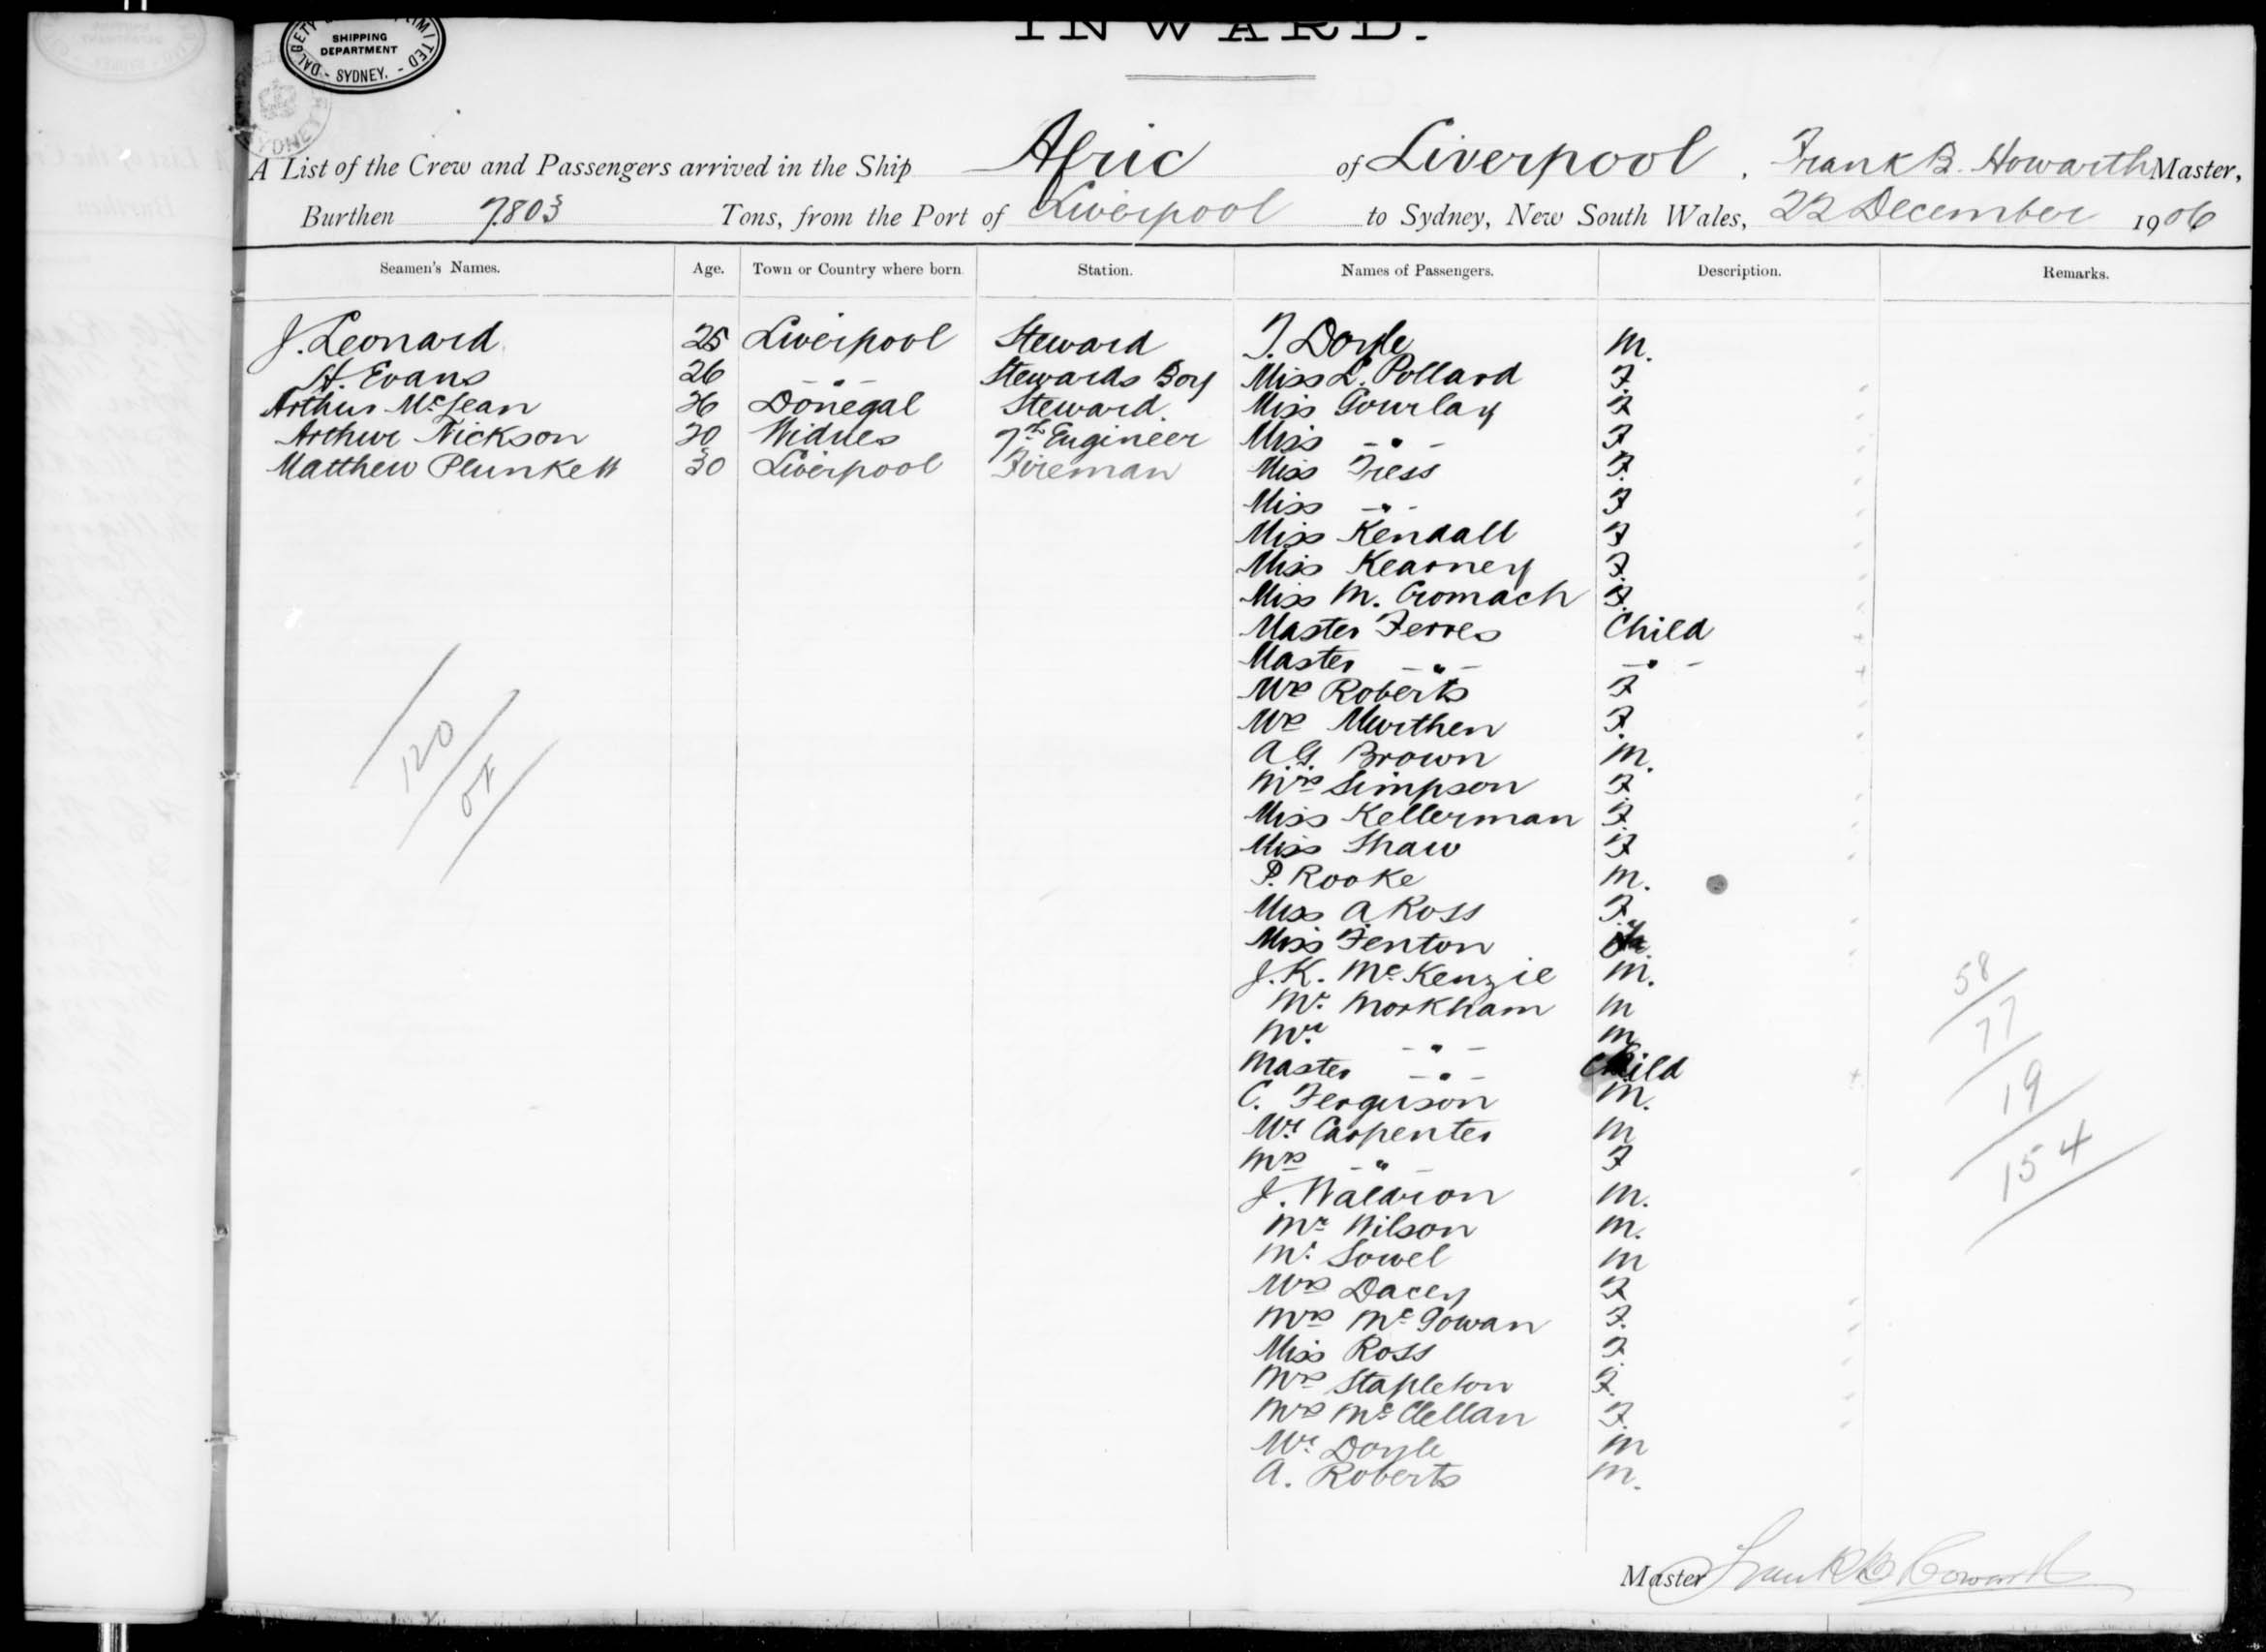 INWARD.
DALGETY LIMITED
SHIPPING
DEPARTMENT
SYDNEY.
A List of the Crew and Passengers arrived in the Ship Afric of Liverpool, Frank B. Howarth Master,
Burthen 7803 Tons, from the Port of Liverpool to Sydney, New South Wales, 22 December 1906
Seamen's Names. Age. Town or Country where born. Station. Names of Passengers. Description. Remarks.
J. Leonard 25 Liverpool Steward T. Doyle M.
H. Evans 26 - " - Stewards Boy Miss L. Pollard F.
Arthur McLean 26 Donegal Steward Miss Gourlay F
Arthur Nickson 20 Widnes 7th Engineer Miss - " - F
Matthew Plunkett 30 Liverpool Fireman Miss Tress F.
Miss - " - F
Miss Kendall F
Miss Kearney F.
Miss M. Cromach F.
Master Ferres Child
Master - " - - " -
Mrs Roberts F
Mrs Murthen F.
A.G. Brown M.
Mrs Simpson F.
Miss Kellerman F.
Miss Shaw F
P. Rooke M.
Miss A Ross F.
Miss Fenton
J.K. McKenzie M.
Mr. Markham M
Mr. - " - M
Master - " - Child
C. Ferguson M.
Mr Carpenter M
Mrs - " - F
J. Waldron M.
Mr Wilson M.
Mr. Sowel M
Mrs Dacey F
Mrs McGowan F.
Miss Ross F
Mrs Stapleton F.
Mrs McClellan F.
Mr. Doyle M
A. Roberts M.
120
58
77
19
154
Master Frank B Howarth